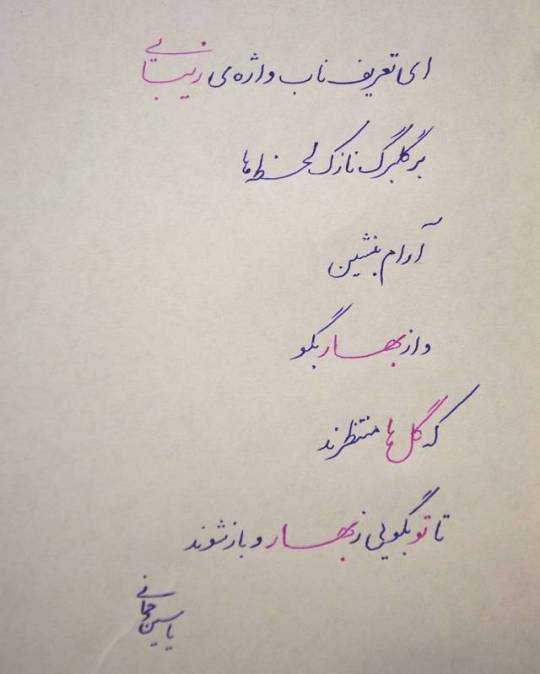 ای تعریف ناب واژه‌ی زیبایی
بر گلبرگ نازک لحظه‌ها
آرام بنشین
و از بهار بگو
که گل‌ها منتظرند
تا تو بگویی ز بهار و باز شوند
یاسین